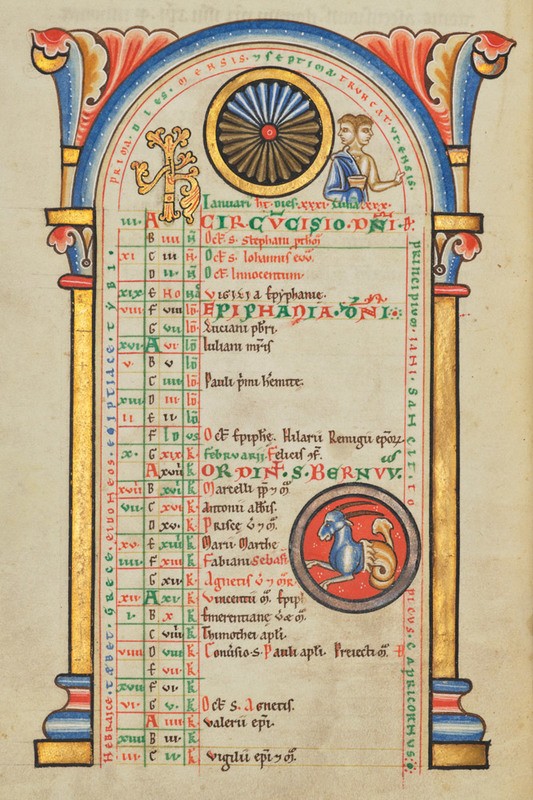 PRIMA DIES MENSIS · & SEPTIMA TRUNCAT UT ENSIS
Ianuari ht dies xxxi Luna xxx
iii A CIRCUCISIO · DNI
B iiii N Oct s stephani pthoi
xi C iii N Oct s Iohannis evv
D ii N Oct Innocentum
xix E No vigilia epyphanie
viii F viii id EPIPHANIA · DNI
G vii id Luciani pbri
xvi A vi id Iuliani mris
v B v id
C iiii id Pauli primi hemite
xiii D iii id
ii E ii id
F id us Oct Epiphe Hilarii Remigii epor
x G xix k februarii Felicis
A xviii k ORDINT · S · BERNVV
xviii B xvii k Marcelli pp & m
vii C xvi k Antonii abbis
D xv k Prisce v & m
xv E xiiii k Marii Marthe
iiii F xiii k Fabiani Sebasti
G xii k Agnetis v & m
xii A xi k Vincentii m
i B x k Emerentiane v & m
C viiii k Thimothei apli
viiii D viii k Conversio · S · Pauli apli Preiecti m
E vii k
xvii F vi k
vi G v k Oct S Agnetis
A iiii k valerii epi
xiiii B iii k
iii C ii k vigilii epi & m
HEBRAICE · TEBET · GRECE · EIVONEOS · EGIPTIACE · TYBI ·
PRINCIPIUM · IANI · SANCIT · TROPICUS · CAPRICORNUS